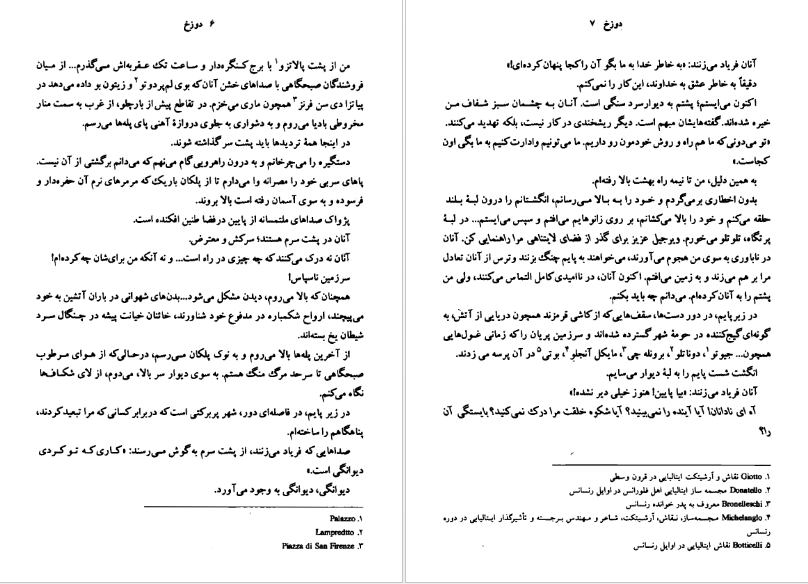 دوزخ ۶
من از پشت پالاتزو۱ با برج کنگره‌دار و ساعت تک عقربه‌اش می‌گذرم... از میان
فروشندگان صبحگاهی با صداهای خشن آنان که بوی لم‌پردوتو۲ و زیتون بو داده می‌دهد در
پیاتزا دی سن فرنز۳ همچون ماری می‌خزم. در تقاطع پیش از بارجلو، از غرب به سمت منار
مخروطی بادیا می‌روم و به دشواری به جلوی دروازهٔ آهنی پای پله‌ها می‌رسم.
در اینجا همهٔ تردیدها باید پشت سر گذاشته شوند.
دستگیره را می‌چرخانم و به درون راهرویی گام می‌نهم که می‌دانم برگشتی از آن نیست.
پاهای سربی خود را مصرانه وا می‌دارم تا از پلکان باریک که مرمرهای نرم آن حفره‌دار و
فرسوده و به سوی آسمان رفته است بالا بروند.
پژواک صداهای ملتمسانه از پایین در فضا طنین افکنده است.
آنان در پشت سرم هستند؛ سرکش و معترض.
آنان نه درک می‌کنند که چه چیزی در راه است... و نه آنکه من برای‌شان چه کرده‌ام!
سرزمین ناسپاس!
همچنان که بالا می‌روم، دیدن مشکل می‌شود...بدن‌های شهوانی در باران آتشین به خود
می‌پیچند، ارواح شکمباره در مدفوع خود شناورند، خائنان خیانت پیشه در چنگال سرد
شیطان یخ بسته‌اند.
از آخرین پله‌ها بالا می‌روم و به نوک پلکان می‌رسم، درحالی‌که از هوای مرطوب
صبحگاهی تا سرحد مرگ منگ هستم. به سوی دیوار سر بالا، می‌دوم، از لای شکاف‌ها
نگاه می‌کنم.
در زیر پایم، در فاصله‌ای دور، شهر پربرکتی است که دربرابر کسانی که مرا تبعید کردند،
پناهگاهم را ساخته‌ام.
صداهایی که فریاد می‌زنند، از پشت سرم به گوش می‌رسند: «کاری که تو کردی
دیوانگی است.»
دیوانگی، دیوانگی به وجود می‌آورد.
۱. Palazzo
۲. Lampredtto
۳. Piazza di San Firenze
دوزخ ۷
آنان فریاد می‌زنند: «به خاطر خدا به ما بگو آن را کجا پنهان کرده‌ای!»
دقیقاً به خاطر عشق به خداوند، این کار را نمی‌کنم.
اکنون می‌ایستم؛ پشتم به دیوار سرد سنگی است. آنان به چشمان سبز شفاف من
خیره شده‌اند. گفته‌هایشان مبهم است. دیگر ریشخندی در کار نیست، بلکه تهدید می‌کنند.
«تو می‌دونی که ما هم راه و روش خودمون رو داریم. ما می‌تونیم وادارت کنیم به ما بگی اون
کجاست.»
به همین دلیل، من تا نیمه راه بهشت بالا رفته‌ام.
بدون اخطاری برمی‌گردم و خود را به بالا می‌رسانم، انگشتانم را درون لبهٔ بلند
حلقه می‌کنم و خود را بالا می‌کشانم، بر روی زانوهایم می‌افتم و سپس می‌ایستم... در لبهٔ
پرتگاه، تلو تلو می‌خورم. ویرجیل عزیز برای گذر از فضای لایتناهی مرا راهنمایی کن. آنان
در ناباوری به سوی من هجوم می‌آورند، می‌خواهند به پایم چنگ بزنند و ترس از آنان تعادل
مرا بر هم می‌زند و به زمین می‌افتم. اکنون آنان، در ناامیدی کامل التماس می‌کنند، ولی من
پشتم را به آنان کرده‌ام. می‌دانم چه باید بکنم.
در زیر پایم، در دور دست‌ها، سقف‌هایی که از کاشی قرمزند همچون دریایی از آتش، به
گونه‌ای گیج‌کننده در حومهٔ شهر گسترده شده‌اند و سرزمین پریان را که زمانی غول‌هایی
همچون... جیوتو۱، دوناتلو۲، برونله چی۳، مایکل آنجلو۴، بوتی۵ در آن پرسه می زدند.
انگشت شست پایم را به لبهٔ دیوار می‌سایم.
آنان فریاد می‌زنند: «بیا پایین! هنوز خیلی دیر نشده!»
آه ای نادانان! آیا آینده را نمی‌بینید؟ آیا شکوه خلقت مرا درک نمی‌کنید؟ بایستگی آن
را؟
۱. Giotto نقاش و آرشیتکت ایتالیایی در قرون وسطی
۲. Donatello مجسمه ساز ایتالیایی اهل فلورانس در اوایل رنسانس
۳. Bronelleschi معروف به پدر خوانده رنسانس
۴. Michelanglo مجسمه‌ساز، نقاش، آرشیتکت، شاعر و مهندس برجسته و تأثیرگذار ایتالیایی در دوره
رنسانس
۵. Botticelli نقاش ایتالیایی در اوایل رنسانس